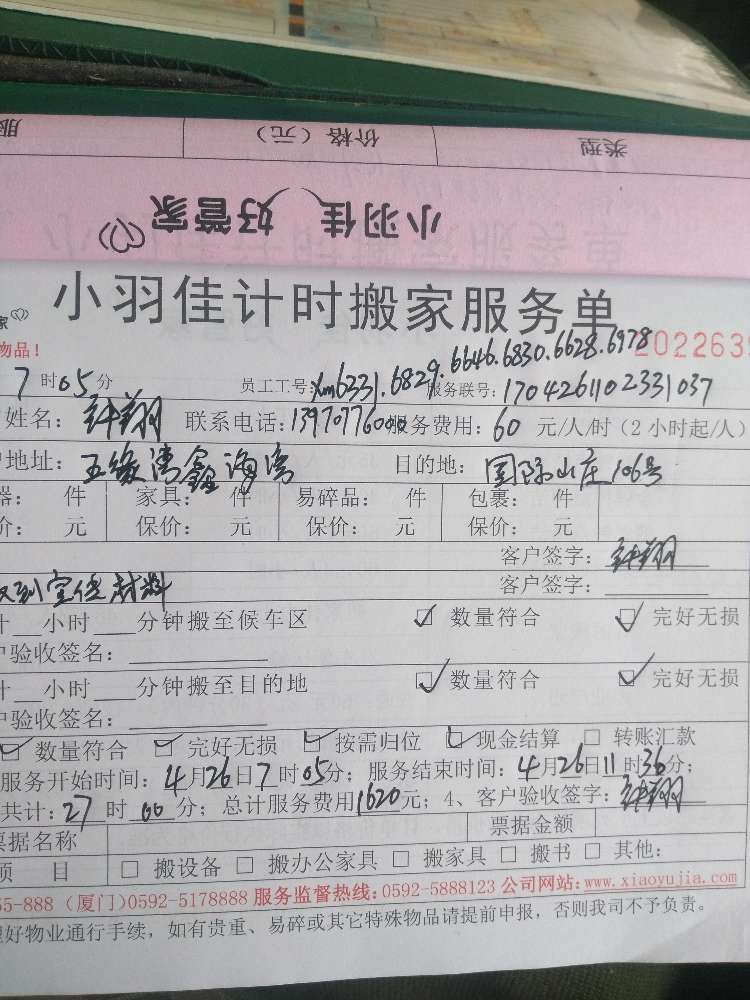 服 价格（元） 类型
小羽佳 好管家
小羽佳计时搬家服务单
家
物品！
2022639
7时05分 员工工号：xm6331.6829.6646.6830.6628.6978 服务联号：1704261102331037
姓名： 联系电话：13970776000 服务费用：60元/人/时（2小时起/人）
户地址：五缘湾鑫海湾 目的地：国际山庄106号
器： 件 家具： 件 易碎品： 件 包裹： 件
价： 元 保价： 元 保价： 元 保价： 元
客户签字：
收到宣传材料 客户签字：
计__小时___分钟搬至候车区 ☑数量符合 ☑完好无损
户验收签名：
计__小时___分钟搬至目的地 ☑数量符合 ☑完好无损
户验收签名：
☑数量符合 ☑完好无损 ☑按需归位 ☑现金结算 □转账汇款
服务开始时间：4月26日7时05分；服务结束时间：4月26日11时36分；
共计：27时00分；总计服务费用1620元；4、客户验收签字：
票据名称 票据金额
项 目 □搬设备 □搬办公家具 □搬家具 □搬书 □其他：
55-888（厦门）0592-5178888 服务监督热线：0592-5888123 公司网站：www.xiaoyujia.com
理好物业通行手续，如有贵重、易碎或其它特殊物品请提前申报，否则我司不予负责。